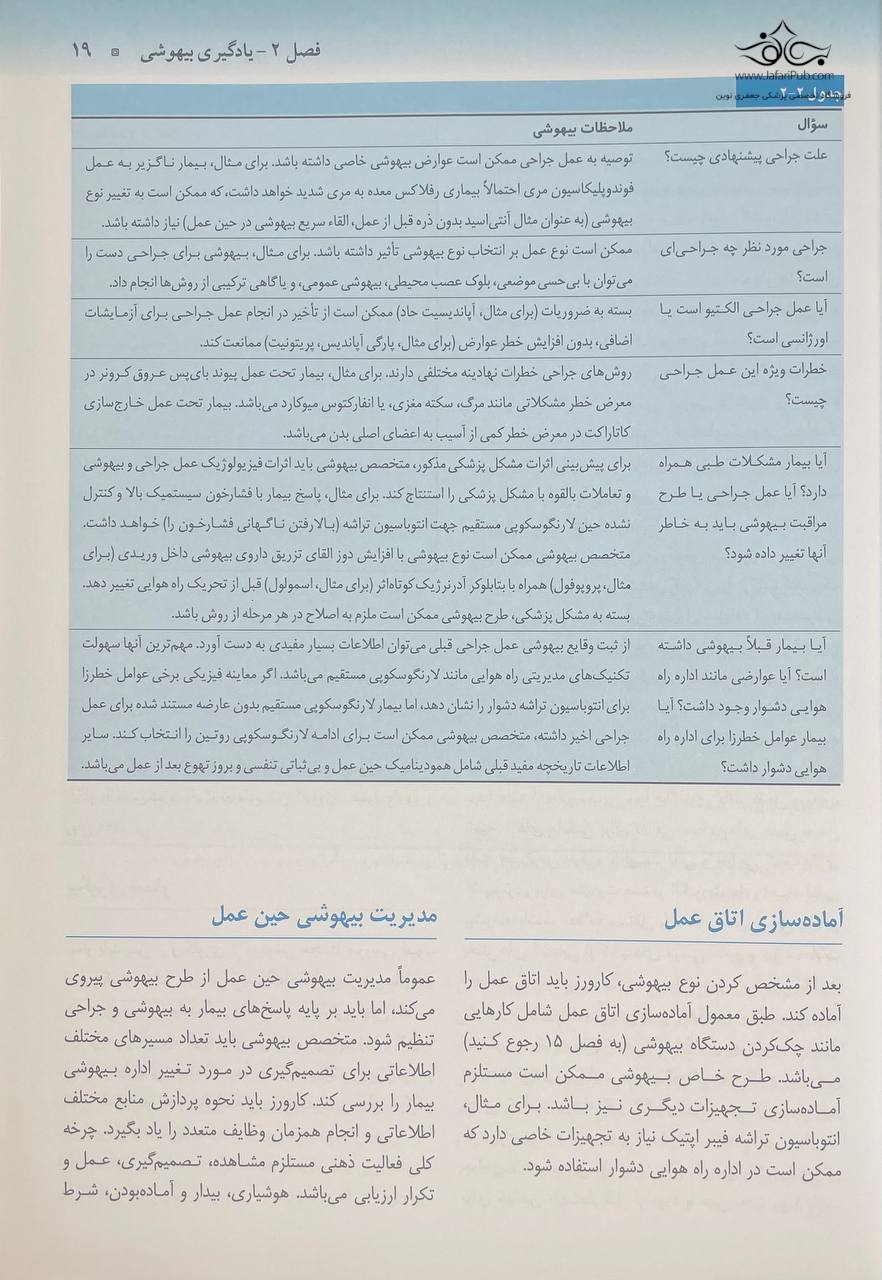 فصل ۲ - یادگیری بیهوشی ۱۹
www.JafariPub.com
فروشگاه تخصصی پزشکی جعفری نوین
جدول ۲-۲
سؤال
ملاحظات بیهوشی
علت جراحی پیشنهادی چیست؟
توصیه به عمل جراحی ممکن است عوارض بیهوشی خاصی داشته باشد. برای مثال، بیمار ناگزیر به عمل
فوندوپلیکاسیون مری احتمالاً بیماری رفلاکس معده به مری شدید خواهد داشت، که ممکن است به تغییر نوع
بیهوشی (به عنوان مثال آنتی‌اسید بدون ذره قبل از عمل، القاء سریع بیهوشی در حین عمل) نیاز داشته باشد.
جراحی مورد نظر چه جراحی‌ای
است؟
ممکن است نوع عمل بر انتخاب نوع بیهوشی تأثیر داشته باشد. برای مثال، بیهوشی برای جراحی دست را
می‌توان با بی‌حسی موضعی، بلوک عصب محیطی، بیهوشی عمومی، و یا گاهی ترکیبی از روش‌ها انجام داد.
آیا عمل جراحی الکتیو است یا
اورژانسی است؟
بسته به ضروریات (برای مثال، آپاندیسیت حاد) ممکن است از تأخیر در انجام عمل جراحی برای آزمایشات
اضافی، بدون افزایش خطر عوارض (برای مثال، پارگی آپاندیس، پریتونیت) ممانعت کند.
خطرات ویژه این عمل جراحی
چیست؟
روش‌های جراحی خطرات نهادینه مختلفی دارند. برای مثال، بیمار تحت عمل پیوند بای‌پس عروق کرونر در
معرض خطر مشکلاتی مانند مرگ، سکته مغزی، یا انفارکتوس میوکارد می‌باشد. بیمار تحت عمل خارج‌سازی
کاتاراکت در معرض خطر کمی از آسیب به اعضای اصلی بدن می‌باشد.
آیا بیمار مشکلات طبی همراه
دارد؟ آیا عمل جراحی یا طرح
مراقبت بیهوشی باید به خاطر
آنها تغییر داده شود؟
برای پیش‌بینی اثرات مشکل پزشکی مذکور، متخصص بیهوشی باید اثرات فیزیولوژیک عمل جراحی و بیهوشی
و تعاملات بالقوه با مشکل پزشکی را استنتاج کند. برای مثال، پاسخ بیمار با فشارخون سیستمیک بالا و کنترل
نشده حین لارنگوسکوپی مستقیم جهت انتوباسیون تراشه (بالارفتن ناگهانی فشارخون را) خواهد داشت.
متخصص بیهوشی ممکن است نوع بیهوشی با افزایش دوز القای تزریق داروی بیهوشی داخل وریدی (برای
مثال، پروپوفول) همراه با بتابلوکر آدرنرژیک کوتاه‌اثر (برای مثال، اسمولول) قبل از تحریک راه هوایی تغییر دهد.
بسته به مشکل پزشکی، طرح بیهوشی ممکن است ملزم به اصلاح در هر مرحله از روش باشد.
آیا بیمار قبلاً بیهوشی داشته
است؟ آیا عوارضی مانند اداره راه
هوایی دشوار وجود داشت؟ آیا
بیمار عوامل خطرزا برای اداره راه
هوایی دشوار داشت؟
از ثبت وقایع بیهوشی عمل جراحی قبلی می‌توان اطلاعات بسیار مفیدی به دست آورد. مهم‌ترین آنها سهولت
تکنیک‌های مدیریتی راه هوایی مانند لارنگوسکوپی مستقیم می‌باشد. اگر معاینه فیزیکی برخی عوامل خطرزا
برای انتوباسیون تراشه دشوار را نشان دهد، اما بیمار لارنگوسکوپی مستقیم بدون عارضه مستند شده برای عمل
جراحی اخیر داشته، متخصص بیهوشی ممکن است برای ادامه لارنگوسکوپی روتین را انتخاب کند. سایر
اطلاعات تاریخچه مفید قبلی شامل همودینامیک حین عمل و بی‌ثباتی تنفسی و بروز تهوع بعد از عمل می‌باشد.
آماده‌سازی اتاق عمل
بعد از مشخص کردن نوع بیهوشی، کارورز باید اتاق عمل را
آماده کند. طبق معمول آماده‌سازی اتاق عمل شامل کارهایی
مانند چک‌کردن دستگاه بیهوشی (به فصل ۱۵ رجوع کنید)
می‌باشد. طرح خاص بیهوشی ممکن است مستلزم
آماده‌سازی تجهیزات دیگری نیز باشد. برای مثال،
انتوباسیون تراشه فیبر اپتیک نیاز به تجهیزات خاصی دارد که
ممکن است در اداره راه هوایی دشوار استفاده شود.
مدیریت بیهوشی حین عمل
عموماً مدیریت بیهوشی حین عمل از طرح بیهوشی پیروی
می‌کند، اما باید بر پایه پاسخ‌های بیمار به بیهوشی و جراحی
تنظیم شود. متخصص بیهوشی باید تعداد مسیرهای مختلف
اطلاعاتی برای تصمیم‌گیری در مورد تغییر اداره بیهوشی
بیمار را بررسی کند. کارورز باید نحوه پردازش منابع مختلف
اطلاعاتی و انجام همزمان وظایف متعدد را یاد بگیرد. چرخه
کلی فعالیت ذهنی مستلزم مشاهده، تصمیم‌گیری، عمل و
تکرار ارزیابی می‌باشد. هوشیاری، بیدار و آماده‌بودن، شرط